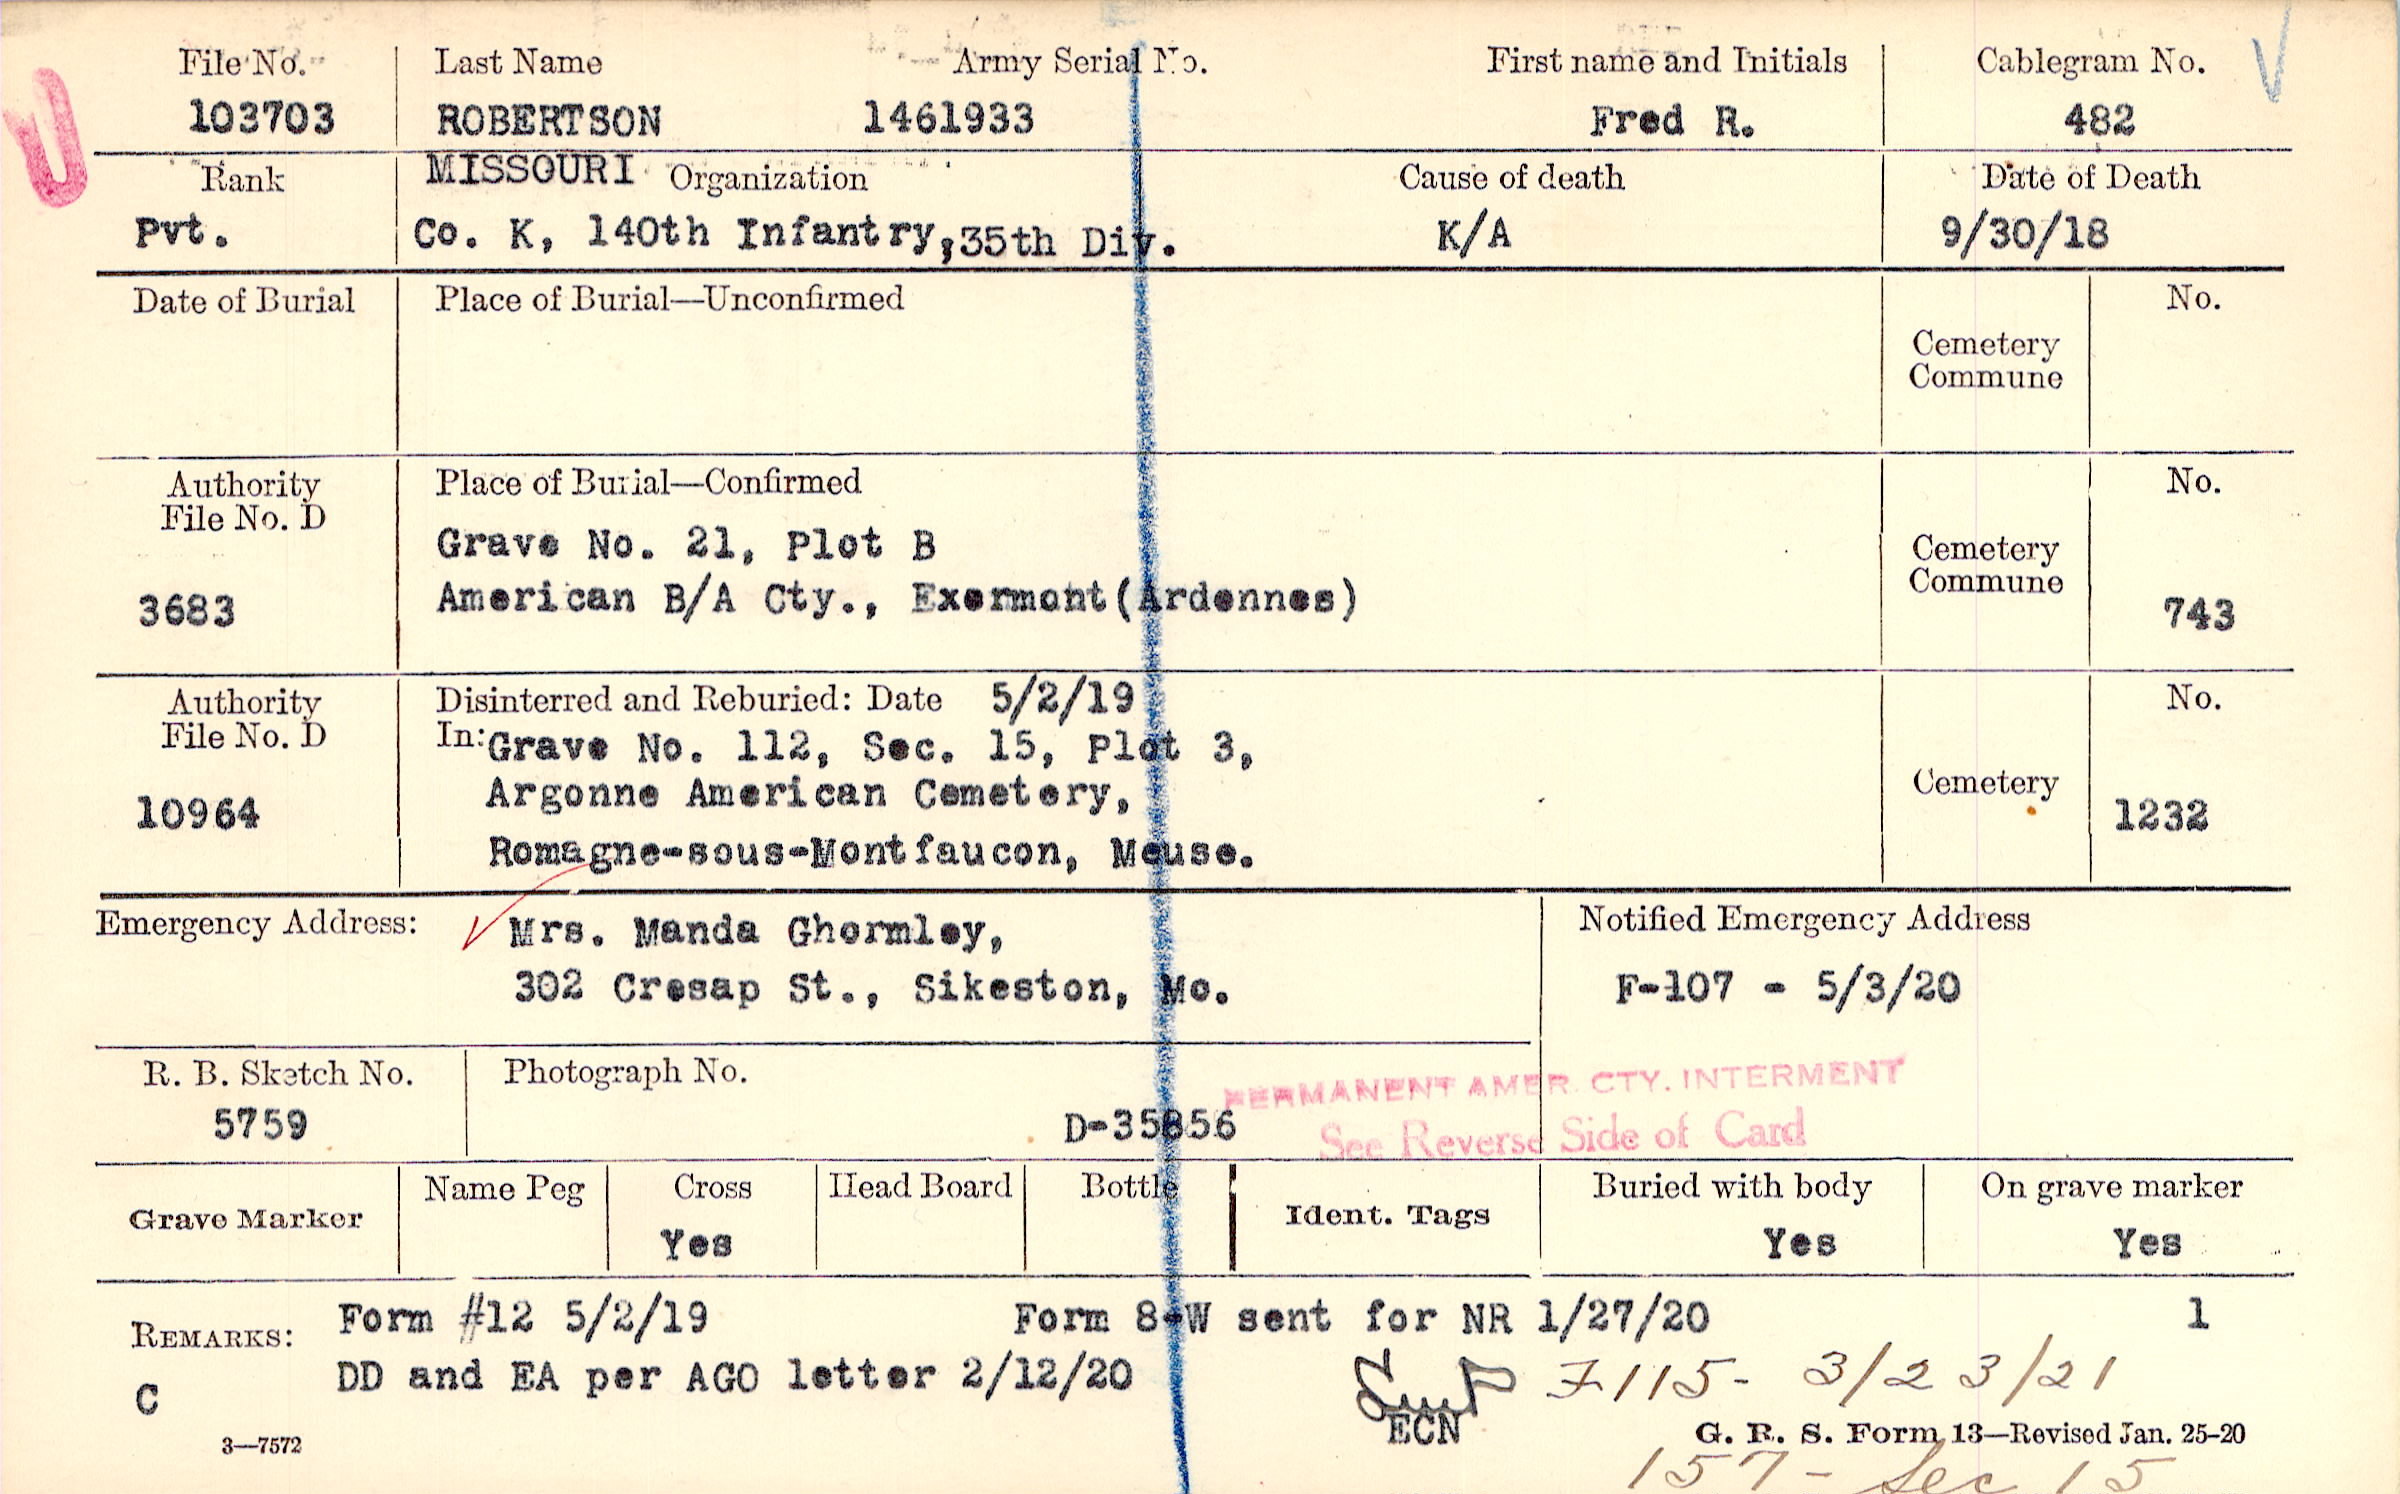 File No. Last Name Army Serial No. First name and Initials Cablegram No.
103703 ROBERTSON 1461933 Fred R. 482
Rank MISSOURI Organization Cause of death Date of Death
Pvt. Co. K, 140th Infantry, 35th Div. K/A 9/30/18
Date of Burial Place of Burial—Unconfirmed No.
Cemetery
Commune
Authority Place of Burial—Confirmed No.
File No. D
Grave No. 21, Plot B Cemetery
Commune
3683 American B/A Cty., Exermont(Ardennes) 743
Authority Disinterred and Reburied: Date 5/2/19 No.
File No. D In: Grave No. 112, Sec. 15, Plot 3,
10964 Argonne American Cemetery, Cemetery 1232
Romagne-sous-Montfaucon, Meuse.
Emergency Address: Mrs. Manda Ghormley, Notified Emergency Address
302 Cresap St., Sikeston, Mo. F-107 - 5/3/20
R. B. Sketch No. Photograph No. PERMANENT AMER. CTY. INTERMENT
5759 D-35856 See Reverse Side of Card
Grave Marker Name Peg Cross Head Board Bottle Ident. Tags Buried with body On grave marker
Yes Yes Yes
REMARKS: Form #12 5/2/19 Form 8-W sent for NR 1/27/20 1
C DD and EA per AGO letter 2/12/20 F115- 3/23/21
ECN
3—7572 G. R. S. Form 13—Revised Jan. 25-20
157- Sec 15